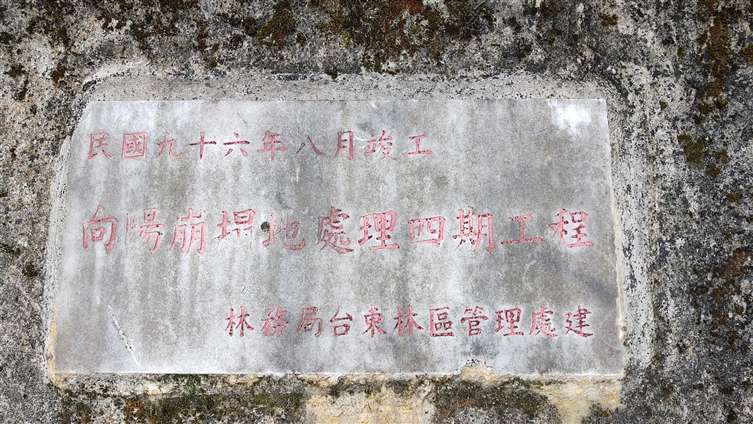 民國九十六年八月竣工
向陽崩塌地處理四期工程
林務局台東林區管理處建